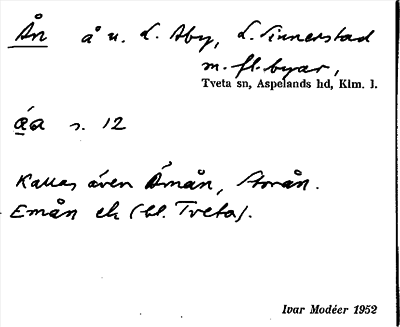 Ån å u. L. Aby, L. Sinnerstad
m. fl. byar,
Tveta sn, Aspelands hd, Klm. l.
áa s. 12
Kallas även Åmån, Storån.
Emån ek (bl. Tveta).
Ivar Modéer 1952